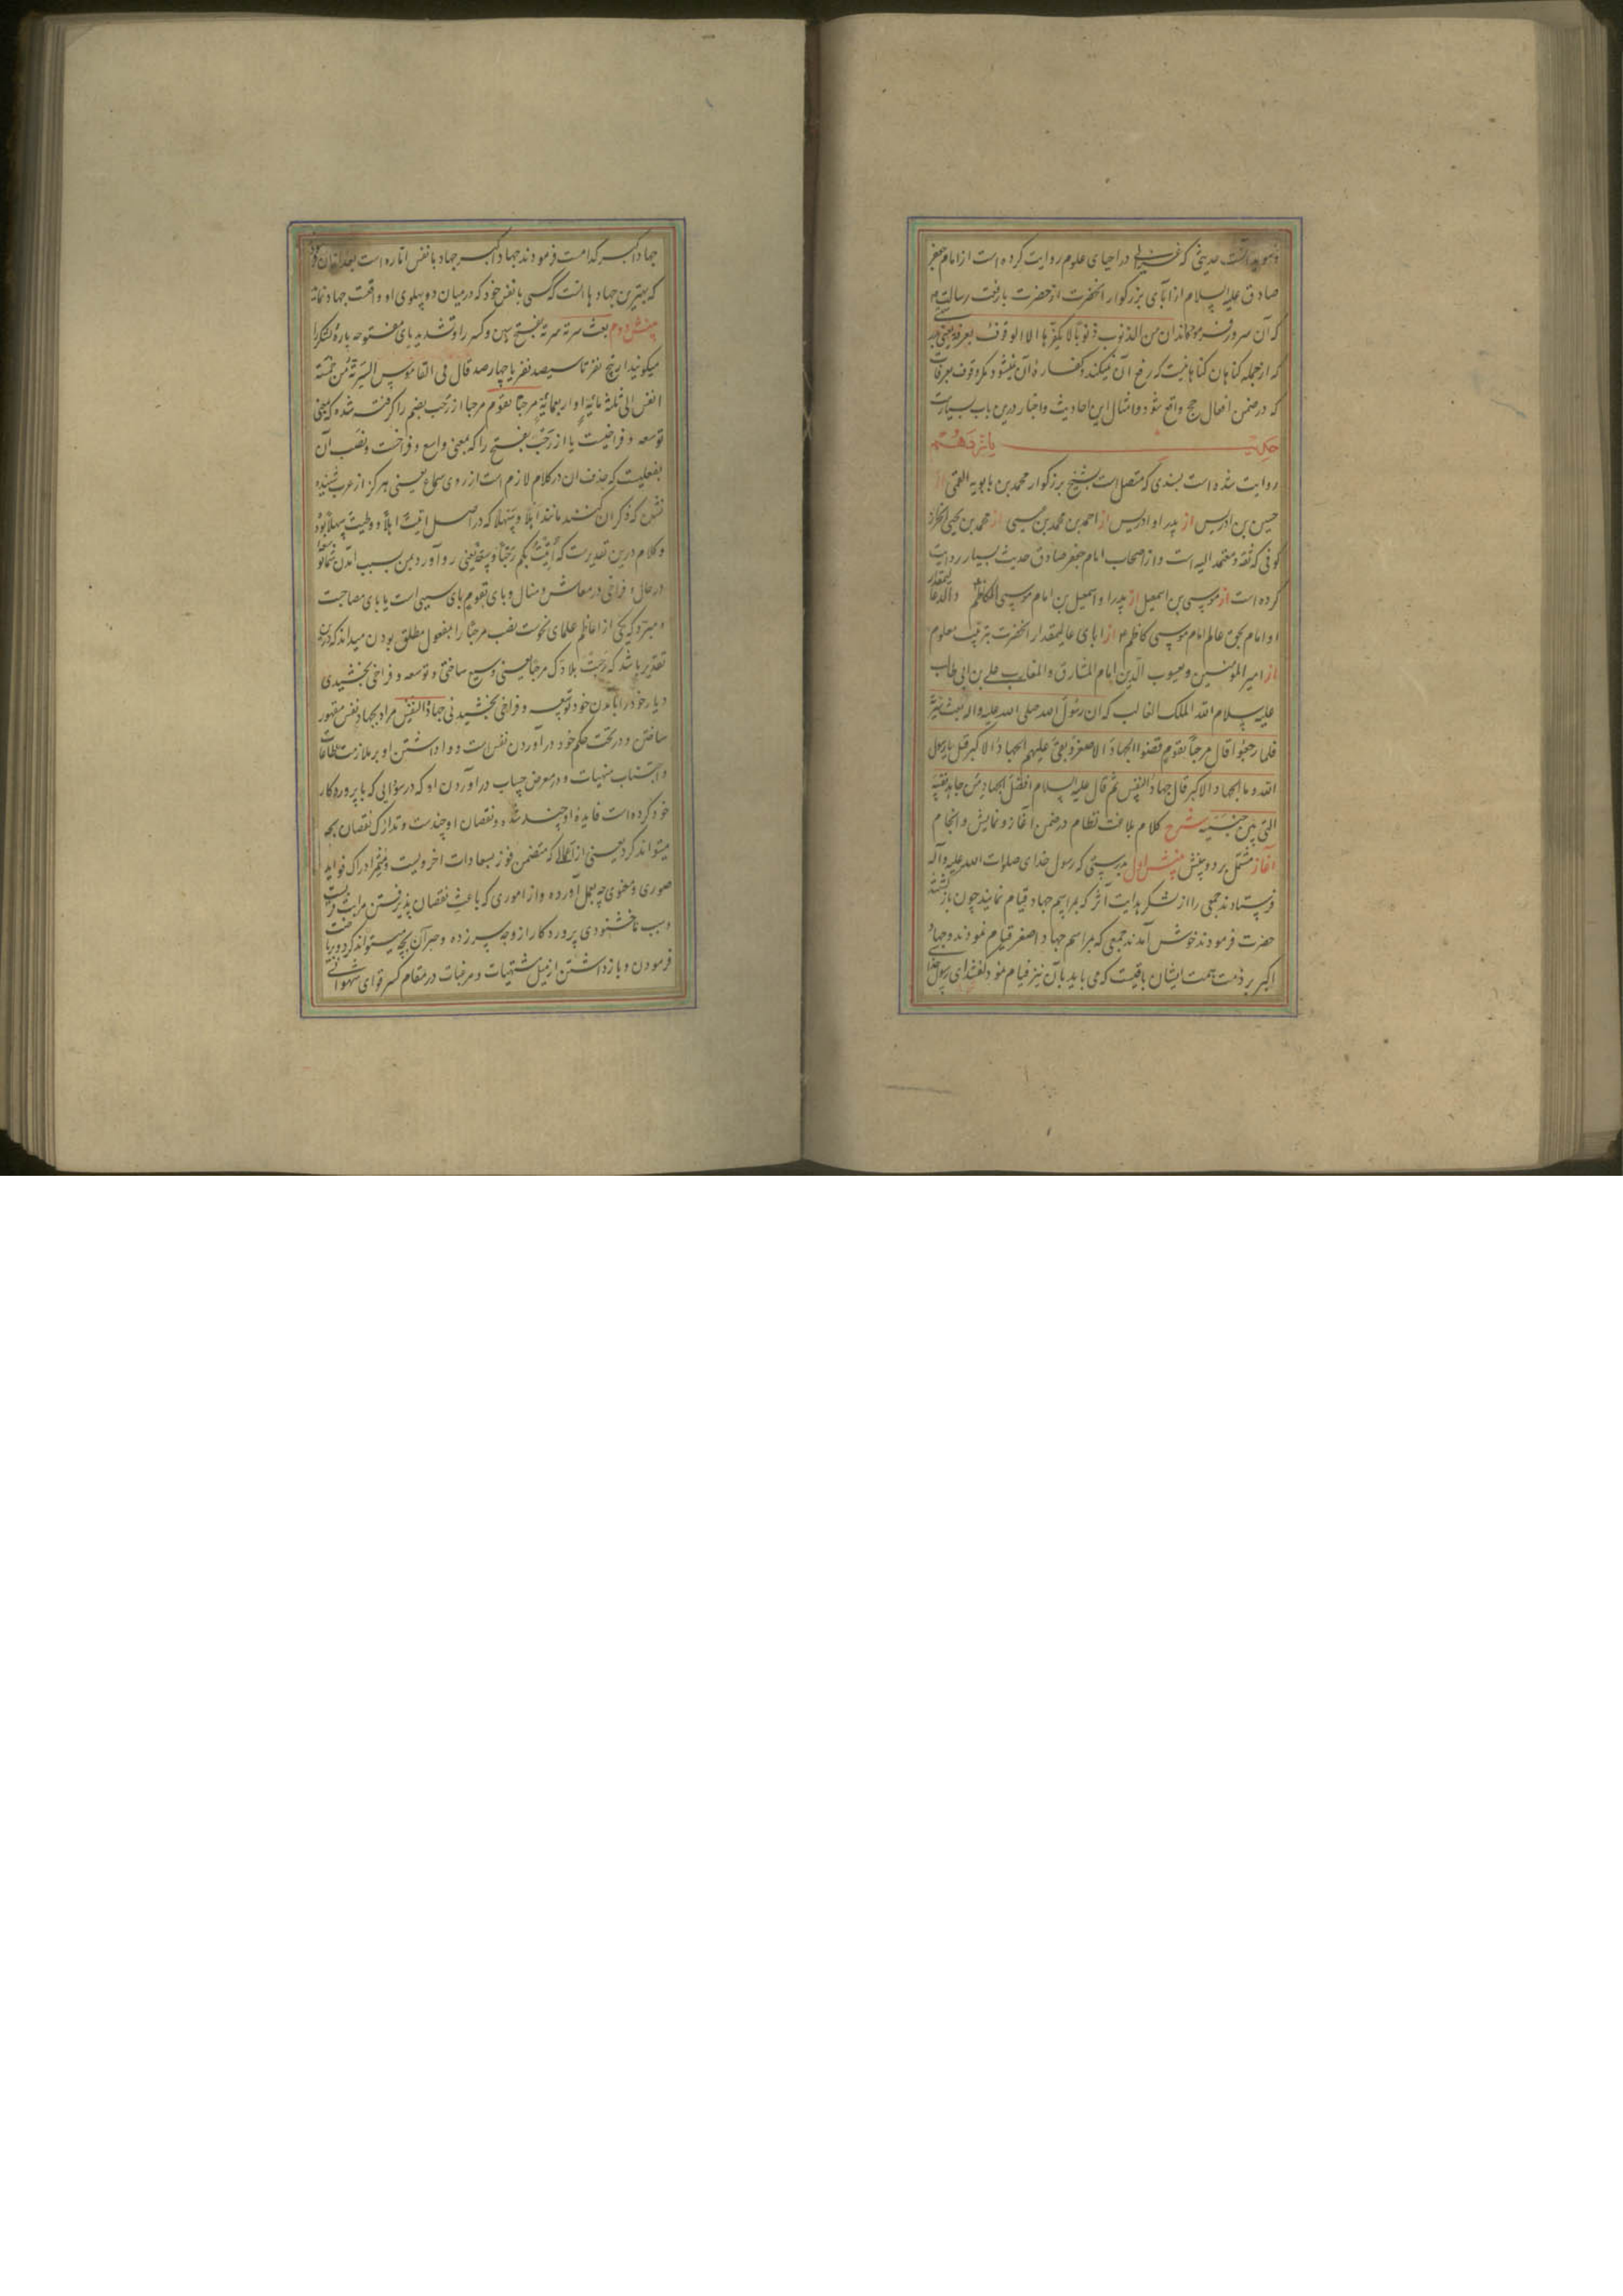 ومؤید آنست حدیثی که غزالی در احیای علوم روایت کرده است از امام جعفر
صادق علیه السلام از آبای بزرکوار آنحضرت از حضرت بارفعت رسالت
که آن سرور فرموده‌اند ان من الذنوب ذنوبا لا یکفرها الا الوقوف بعرفة یعنی
که از جمله کناهان کناهانیست که رفع آن نمیکند و کفاره آن نمیشود مکر وقوف بعرفات
که در ضمن افعال حج واقع شود و امثال این احادیث و اخبار درین باب بسیارست
حدیث یازدهم
روایت شده است بسندی که متصل است بشیخ بزرکوار محمد بن بابویه القمی از
حسین بن ادریس از پدر او ادریس از احمد بن محمد بن عیسی از محمد بن یحیی الخزاز
کوفی که ثقه و معتمد الیه است و از اصحاب امام جعفر صادق حدیث بسیار روایت
کرده است از موسی بن اسمعیل از پدر او اسمعیل بن امام موسی الکاظم
او امام بحق عالم امام موسی کاظم از ابای عالیمقدار آنحضرت بترتیب معلوم
از امیر المؤمنین و یعسوب الدین امام المشارق و المغارب علی بن ابی طالب
علیه سلام الله الملک الغالب که ان رسول الله صلی الله علیه واله بعث سریة
فلما رجعوا قال مرحبا بقوم قضوا الجهاد الاصغر و بقی علیهم الجهاد الاکبر قیل یا رسول
الله و ما الجهاد الاکبر قال جهاد النفس ثم قال علیه السلام افضل الجهاد من جاهد نفسه
التی بین جنبیه شرح کلام بلاغت نظام در ضمن آغاز و نمایش و انجام
آغاز مشتمل بر دو بینش بینش اول بدرستی که رسول خدای صلوات الله علیه وآله
فرستادند جمعی را از لشکر هدایت اثر که بمراسم جهاد قیام نمایند چون بازکشتند
حضرت فرمودند خوش آمدند جمعی که بمراسم جهاد اصغر قیام نمودند و جهاد
اکبر بر ذمت همت ایشان باقیست که می باید بآن نیز قیام نمود کفتند ای رسول خدا
جهاد اکبر کدامست فرمودند جهاد اکبر جهاد با نفس اماره است بعد از آن
که بهترین جهادها آنست که کسی با نفس خود که در میان دو پهلوی او واقعست جهاد نماید
بینش دوم بعث سریة سریه بفتح سین و کسر را و تشدید یای مفتوحه پاره لشکر را
میکویند از پنج نفر تا سیصد نفر یا چهارصد قال فی القاموس السریة من خمسة
انفس الی ثلثة مائة او اربعمائة مرحبا بقوم مرحبا از رحب بضم را کرفته شده که بمعنی
توسعه و فراخیست یا از رحب بفتح را که بمعنی واسع و فراخست و نصب آن
بفعلیست که حذف آن در کلام لازم است از روی سماع یعنی هرکز از عرب شنیده
نشده که ذکر آن کنند مانند اهلا و سهلا که در اصل اتیت اهلا و وطیت سهلا بوده
و کلام درین تقدیرست که اتیت بکم رحبا و سعة یعنی رو آورد بمن بسبب آمدن شما
در حال و فراخی در معاش و منال و بای بقوم بای سببی است یا بای مصاحبت
و مبرد که یکی از اعاظم علمای نحوست نصب مرحبا را بمفعول مطلق بودن میداند که درین
تقدیر باشد که رحبت بلادک مرحبا یعنی وسیع ساختی و توسعه و فراخی بخشیدی
دیار خود را بآمدن خود توسعه و فراخی بخشیدنی جهاد النفس مراد بجهاد نفس مقهور
ساختن و در تحت حکم خود درآوردن نفس است و واداشتن او بر ملازمت طاعات
و اجتناب منهیات و در معرض حساب درآوردن او که در سودایی که با پروردکار
خود کرده است فایده او چند شده و نقصان او چندست و تدارک نقصان بچه
میتواند کرد یعنی از اعمالی که متضمن فوز بسعادات اخرویست و مثمر ادراک فواید
صوری و معنوی چه بعمل آورده و از اموری که باعث نقصان پذیرفتن مراتب قرب
و سبب ناخشنودی پروردکار از وچه سرزده و جبر آن بچه میتواند کرد و ریاضت
فرمودن و بازداشتن از نیل مشتهیات و مرغبات در مقام کسر قوای شهوانی